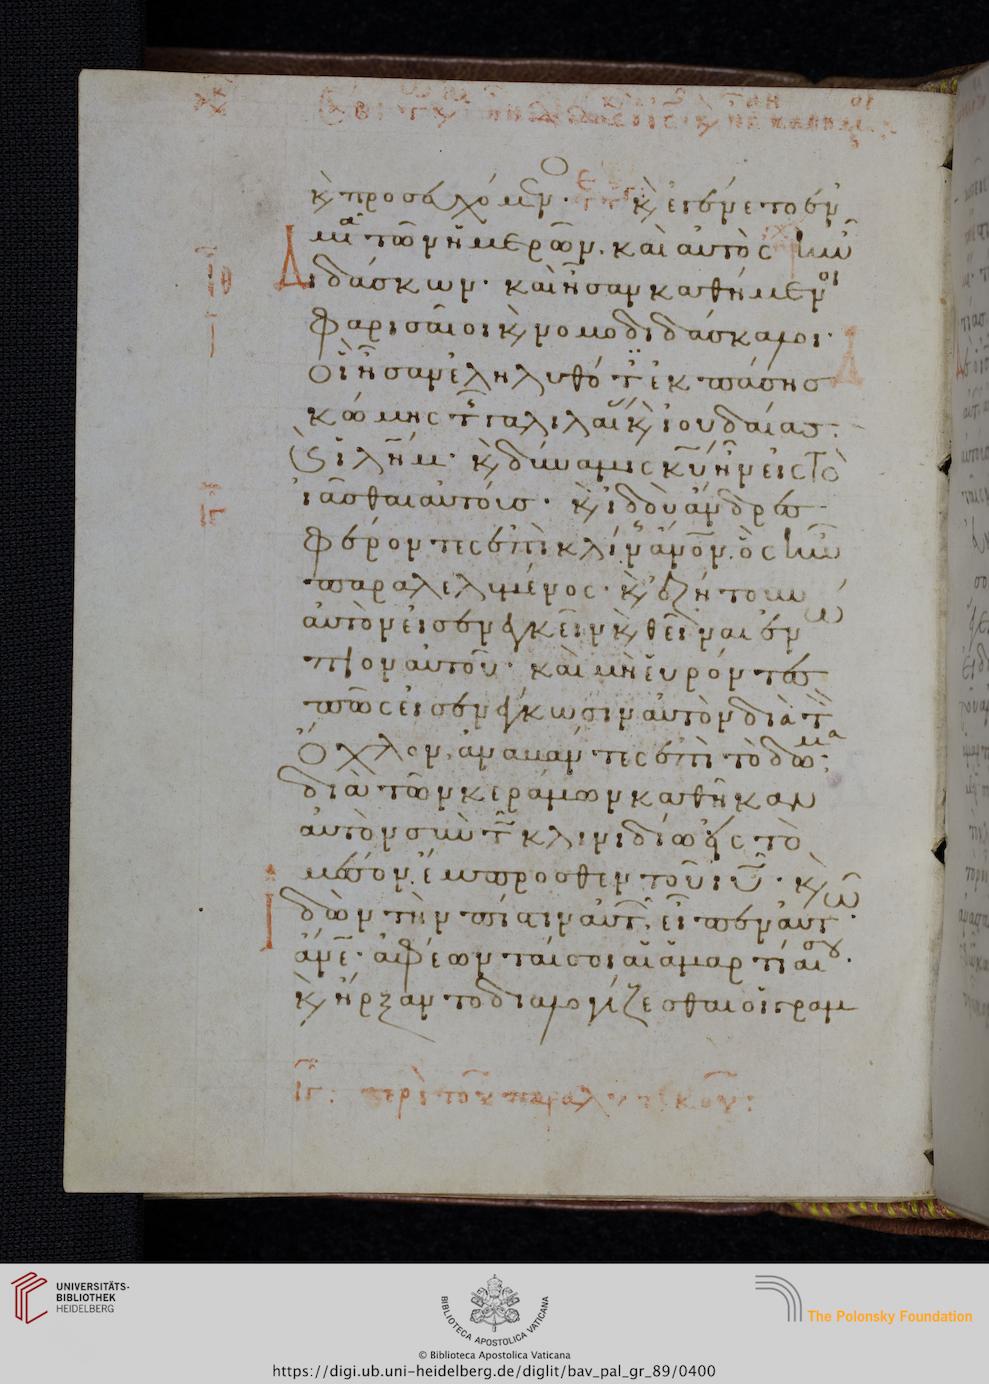 κ, προσευχόμεν.
κ, ἐγένετο ἐν
μιᾶ τῶν ἡμερῶν. καὶ αὐτὸς ἦν
Διδάσκων. καὶ ἦσαν καθήμενοι
φαρισαῖοι κ, νομοδιδάσκαλοι.
οἳ ἦσαν ἐληλυθότ ἐκ πάσης
κώμης τ γαλιλαί κ, ἰουδαίας.
ἱλῆμ. κ, δύναμις κυ ἦν εἰς τὸ
ἰᾶσθαι αὐτούς. κ, ἰδοὺ ἄνδρες
φέροντες ἐπὶ κλίν ἀνον. ὃς ἦν
παραλελυμένος. κ, ἐζήτουν
αὐτὸν εἰσενεγκεῖν κ, θεῖναι ἐν
πιον αὐτοῦ. καὶ μὴ εὑρόντες
πῶς εἰσενέγκωσιν αὐτὸν διὰ τ
Ὄχλον, ἀναβάντες ἐπὶ τὸ δῶμα
διὰ τῶν κεράμων καθῆκαν
αὐτὸν σὺν τ κλινιδίω εἰς τὸ
μέσον ἔμπροσθεν τοῦ ιυ. κ,
ἰδὼν τὴν πίστιν αὐτ. εἶπεν αὐτ.
ἄνε. ἀφέωνταί σοι αἱ ἁμαρτίαι σου.
κ, ἤρξαντο διαλογίζεσθαι οἱ γραμ
ιγ: περὶ τοῦ παραλυτικοῦ:
UNIVERSITÄTS-
BIBLIOTHEK
HEIDELBERG
BIBLIOTECA APOSTOLICA VATICANA
The Polonsky Foundation
© Biblioteca Apostolica Vaticana
https://digi.ub.uni-heidelberg.de/diglit/bav_pal_gr_89/0400